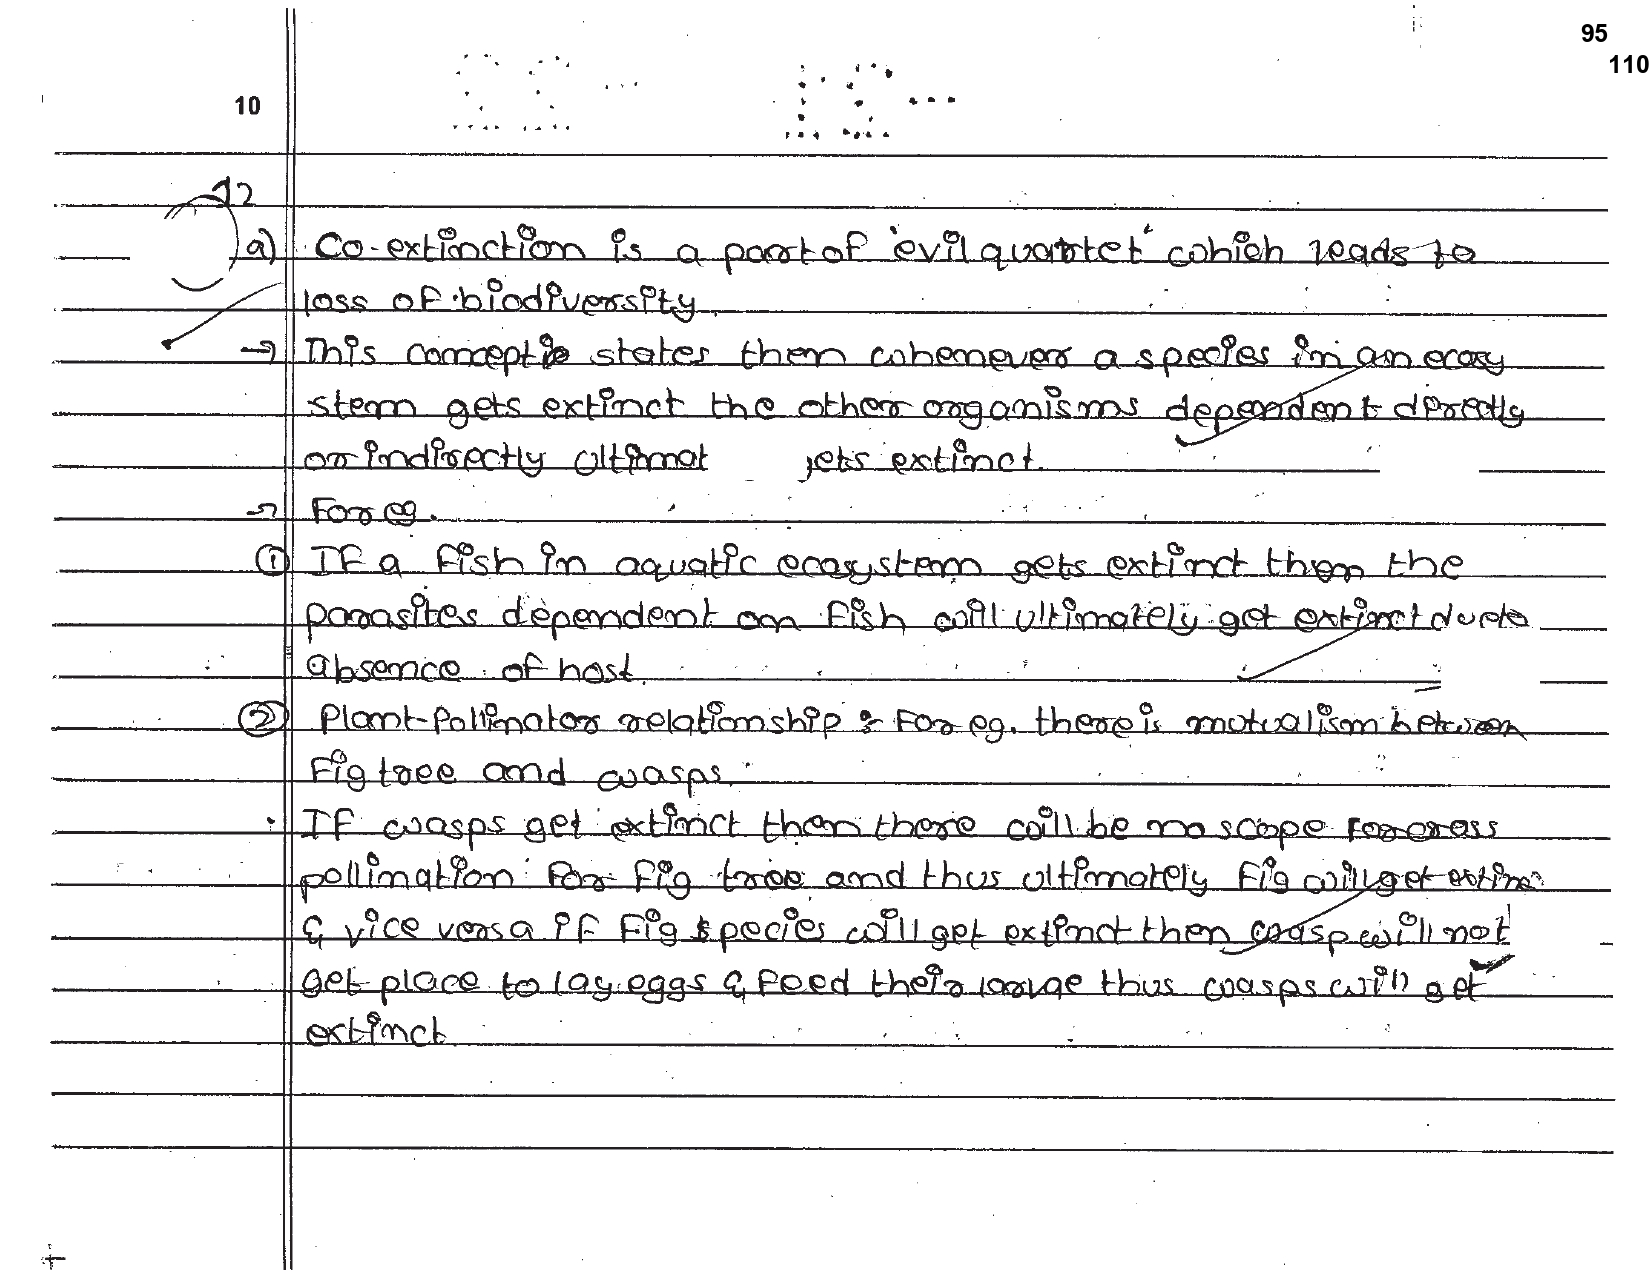 95
110
10
12
a) Co-extinction is a part of 'evil quartet' which leads to
loss of biodiversity.
→ This concept states then whenever a species in an ecosy
stem gets extinct the other organisms dependent directly
or indirectly ultimat gets extinct.
→ For eg.
① If a fish in aquatic ecosystem gets extinct then the
parasites dependent on fish will ultimately get extinct due to
absence of host.
② Plant-Pollinator relationship : For eg. there is mutualism between
Fig tree and wasps.
• If wasps get extinct then there will be no scope for cross
pollination for fig tree and thus ultimately fig will get extinc
& vice versa if fig species will get extinct then wasp will not
get place to lay eggs & feed their larvae thus wasps will get
extinct